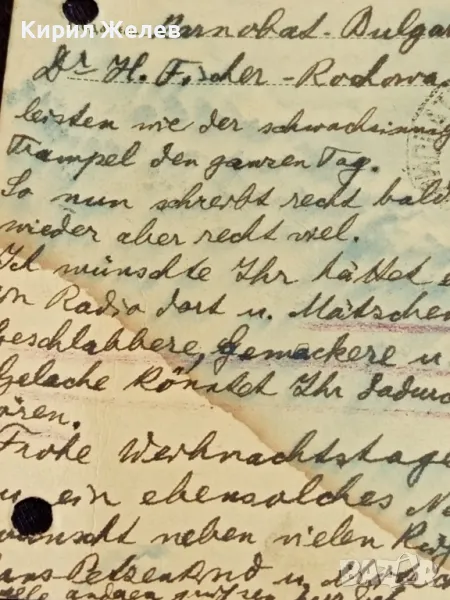 Кирил Желев
Karnobat - Bulgar
Dr H. Fischer - Rochowa
leisten wie der schwachsinnig
Trampel den ganzen Tag.
So nun schreibt recht bald
wieder aber recht viel.
Ich wünschte Ihr hättet e
in Radio dort u. Mätschen
Geschlabbere, Gemeckere u
Gelache könntet Ihr dadurc
ören.
Frohe Weihnachtstage
u. ein ebensolches Ne
wünscht neben vielen
Hans-Petzenkind u.
alle andern
bazar